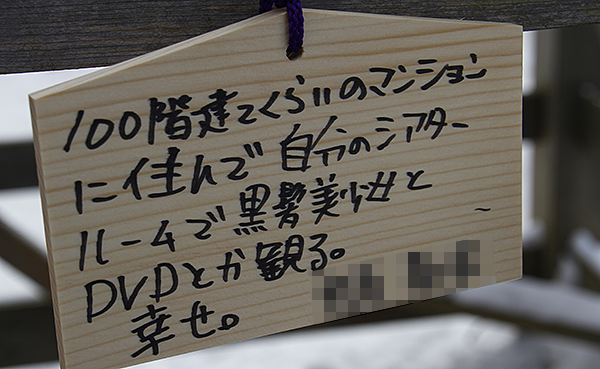 100階建てくらいのマンション
に住んで自分のシアター
ルームで黒髪美少女と
DVDとか観る。
幸せ。